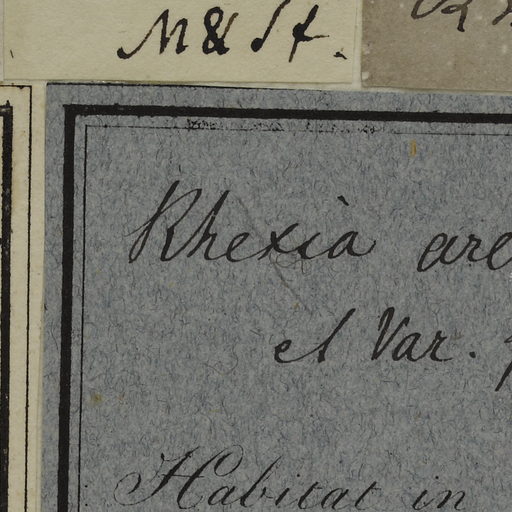 M & Sf.
Rhexia are
et Var.
Habitat in